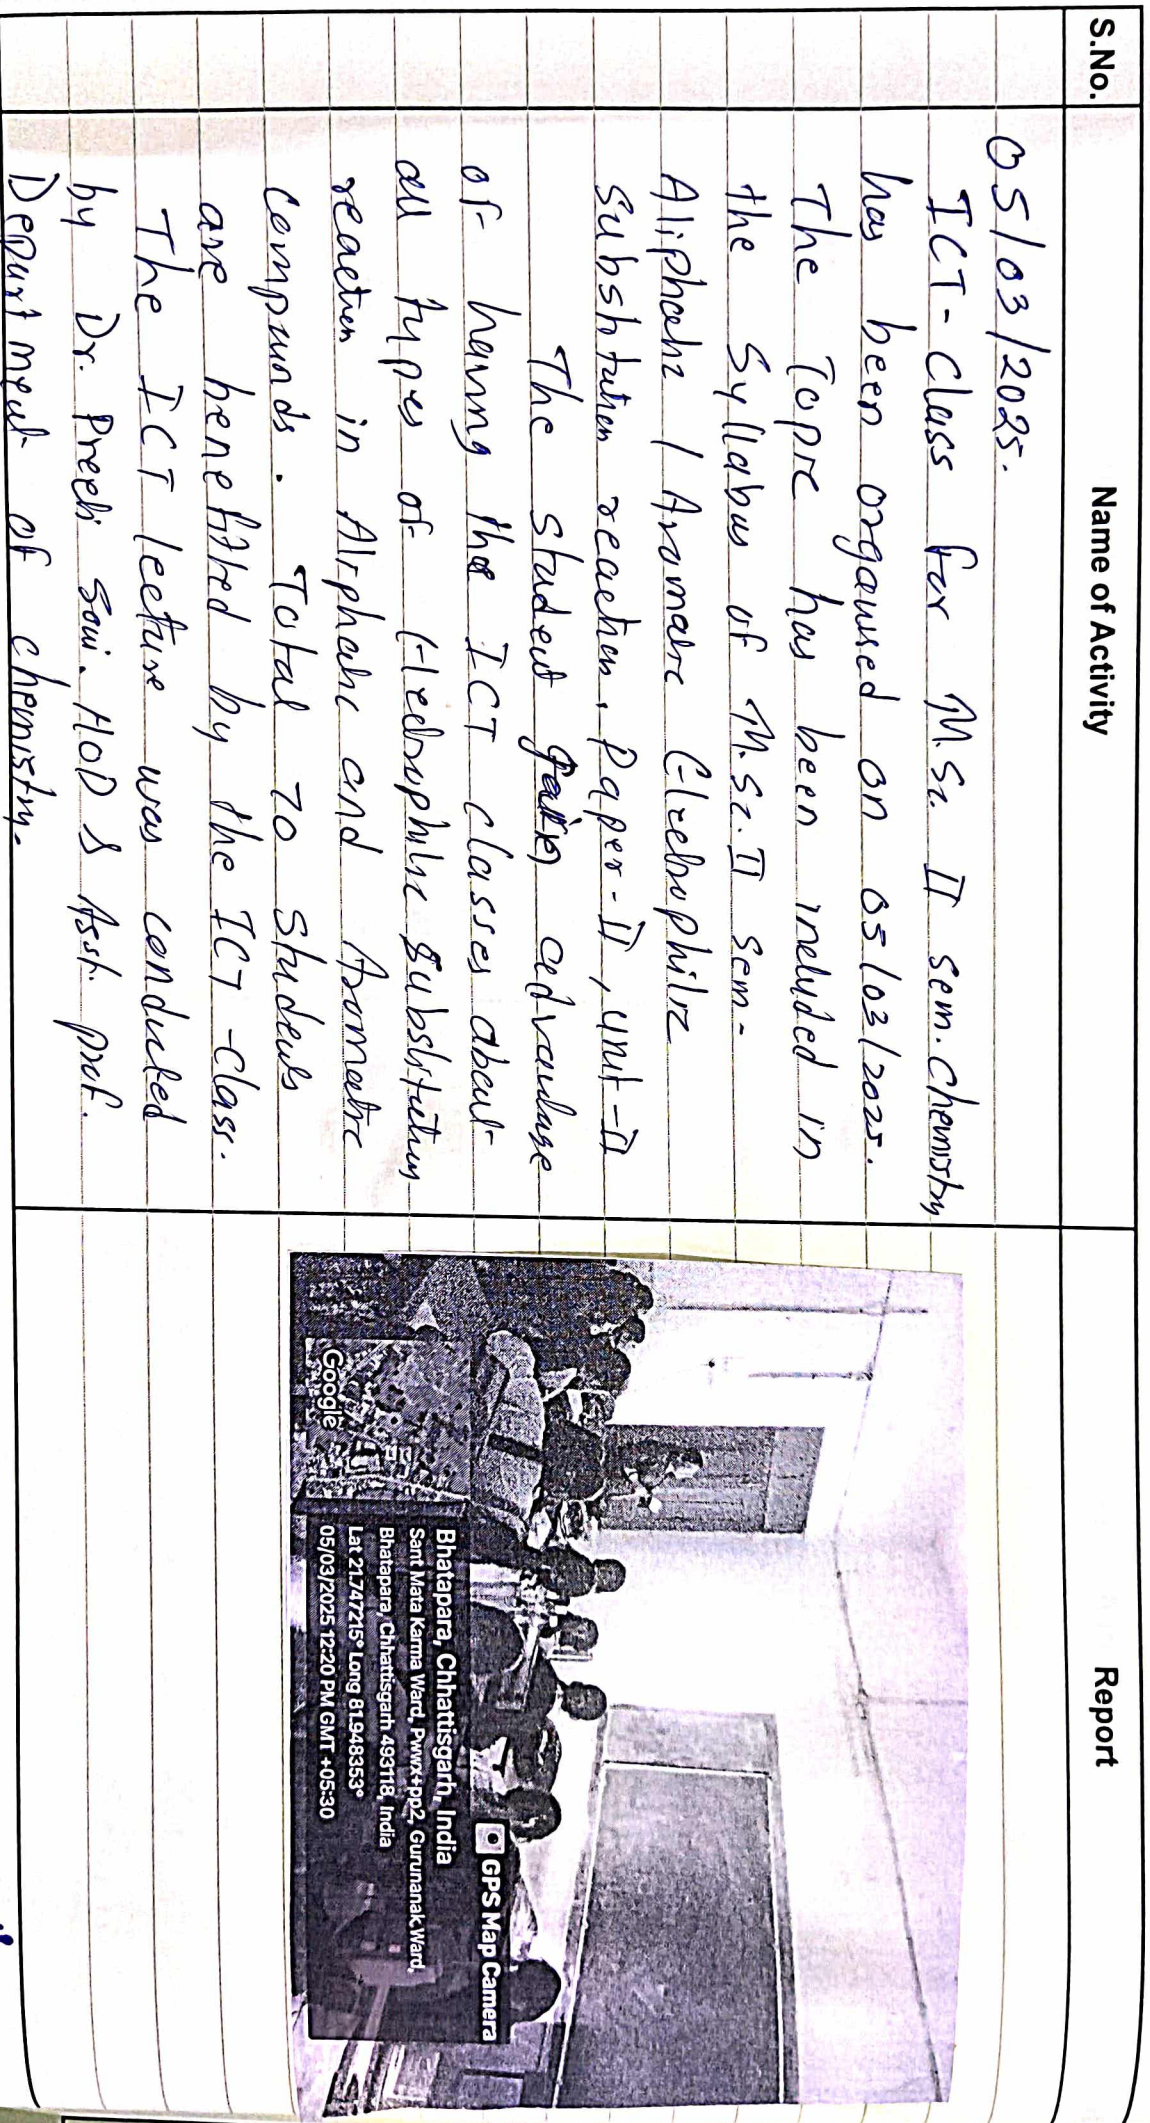 S.No.
Name of Activity
Report
05/03/2025.
ICT-Class for M.Sc. II sem. Chemistry
has been organised on 05/03/2025.
The Topic has been included in
the Syllabus of M.Sc. II Sem-
Aliphatic / Aromatic Electrophilic
Substitution reaction, Paper-II, Unit-II
The student gain advantage
of having the ICT classes about
all types of Electrophilic Substitution
reaction in Aliphatic and Aromatic
Compounds. Total 70 Students
are benefitted by the ICT-Class.
The ICT lecture was conducted
by Dr. Preeti Soni. HOD & Asst. prof.
Department of Chemistry.
GPS Map Camera
Bhatapara, Chhattisgarh, India
Sant Mata Karma Ward, Pwwx+pp2, Gurunanak Ward,
Bhatapara, Chhattisgarh 493118, India
Lat 21.747215° Long 81.948353°
05/03/2025 12:20 PM GMT +05:30
Google